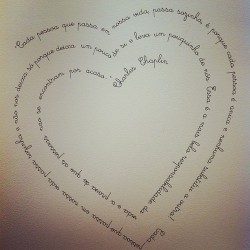 Cada pessoa que passa em nossa vida passa sozinha, é porque cada pessoa é única e nenhuma substitui a outra! Cada pessoa que passa em nossa vida passa sozinha e não nos deixa só porque deixa um pouco de si e leva um pouquinho de nós. Essa é a mais bela responsabilidade da vida e a prova de que as pessoas não se encontram por acaso."
Charles Chaplin